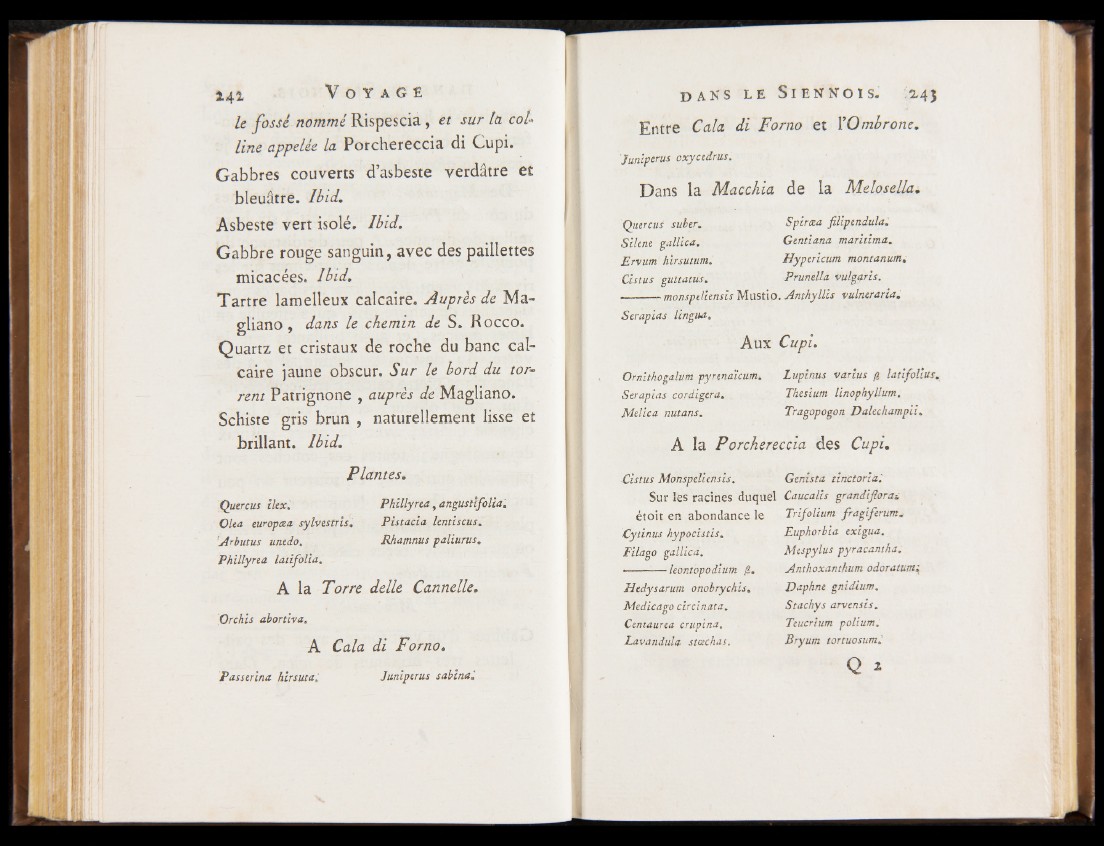 242 VOYAGE
le fossé nommé Rispescia, et sur la col-
line appelée la Porchereccia di Cupi.
Gabbres couverts d'asbeste verdâtre et
bleuâtre. Ibid.
Asbeste vert isolé. Ibid.
Gabbre rouge sanguin, avec des paillettes
micacées. Ibid.
Tartre lamelleux calcaire. Auprès de Ma-
gliano, dans le chemin de S. Rocco.
Quartz et cristaux de roche du banc cal-
caire jaune obscur. Sur le bord du tor-
rent Patrignone, auprès de Magliano.
Schiste gris brun, naturellement lisse et
brillant. Ibid.
Plantes.
Quercus ilex.
Olea europœa sylvestris.
Arbutus unedo.
Phillyrea latifolia.
Phillyrea, angustifolia.
Pistacia lentiscus.
Rhamnus paliurus.
A la Torre delle Cannelle.
Orchis abortiva.
A Cala di Forno.
Passerina hirsuta.
Juniperus sabina.
DANS LE SIENNOIS. 243
Entre Cala di Forno et l'Ombrone.
Juniperus oxycedrus.
Dans la Macchia de la Melosella.
Quercus suber.
Silene gallica.
Ervum hirsutum.
Cistus guttatus.
——— monspeliensis Mustio.
Serapias lingua.
Spirœa filipendula.
Gentiana maritima.
Hypericum montanum.
Prunella vulgaris.
Anthyllis vulneraria.
Aux Cupi.
Ornithogalum pyrenaïcum.
Serapias cordigera.
Melica nutans.
Lupinus varius β latifolius.
Thesium linophyllum.
Tragopogon Dalechampii.
A la Porchereccia des Cupi.
Cistus Monspeliensis.
Sur les racines duquel
étoit en abondance le
Cytinus hypocistis.
Filago gallica.
——— leontopodium β.
Hedysarum onobrychis.
Medicago circinata.
Centaurea crupina.
Lavandula stœchas.
Genista tinctoria.
Caucalis grandiflora.
Trifolium fragiferum.
Euphorbia exigua.
Mespylus pyracantha.
Anthoxanthum odoratum.
Daphne gnidium.
Stachys arvensis.
Teucrium polium.
Bryum tortuosum.
Q 2